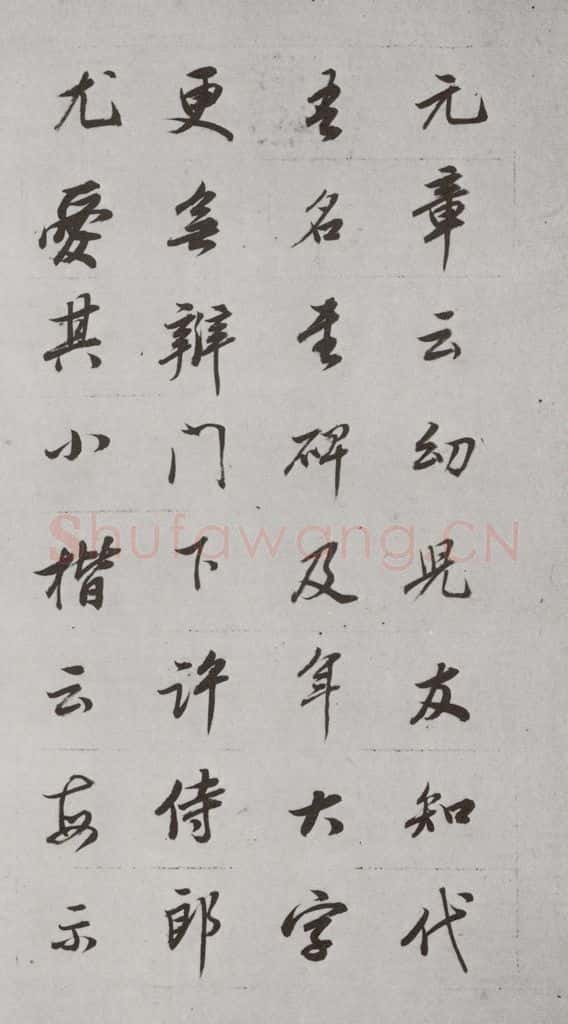 元章云幼児友知代
吾名書碑及年大字
更無辨門下許侍郎
尤愛其小楷云每示
Shufawang.CN